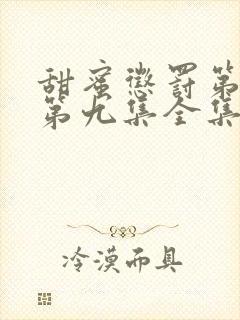 甜蜜惩罚第
第九集全集
冷漠面具